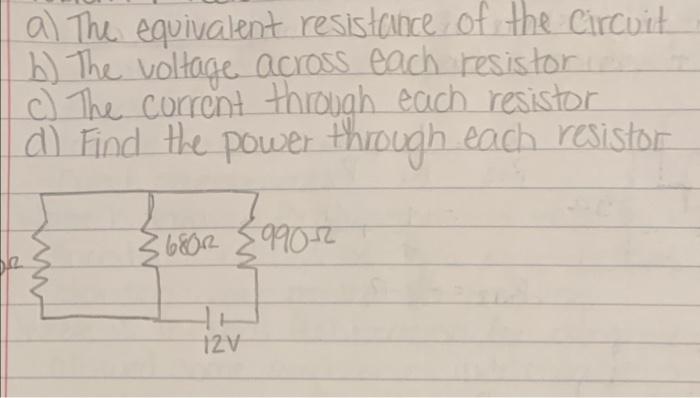 a) The equivalent resistance of the circuit
b) The voltage across each resistor
c) The current through each resistor
d) Find the power through each resistor
680Ω
990Ω
12V